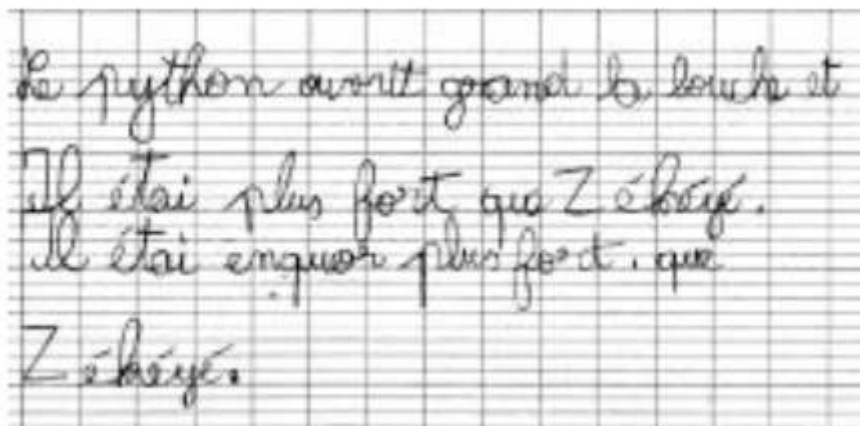 Le python ouvrit grand la bouche et
Il étai plus fort que Zékéyé.
Il étai enquor plus fort. que
Zékéyé.